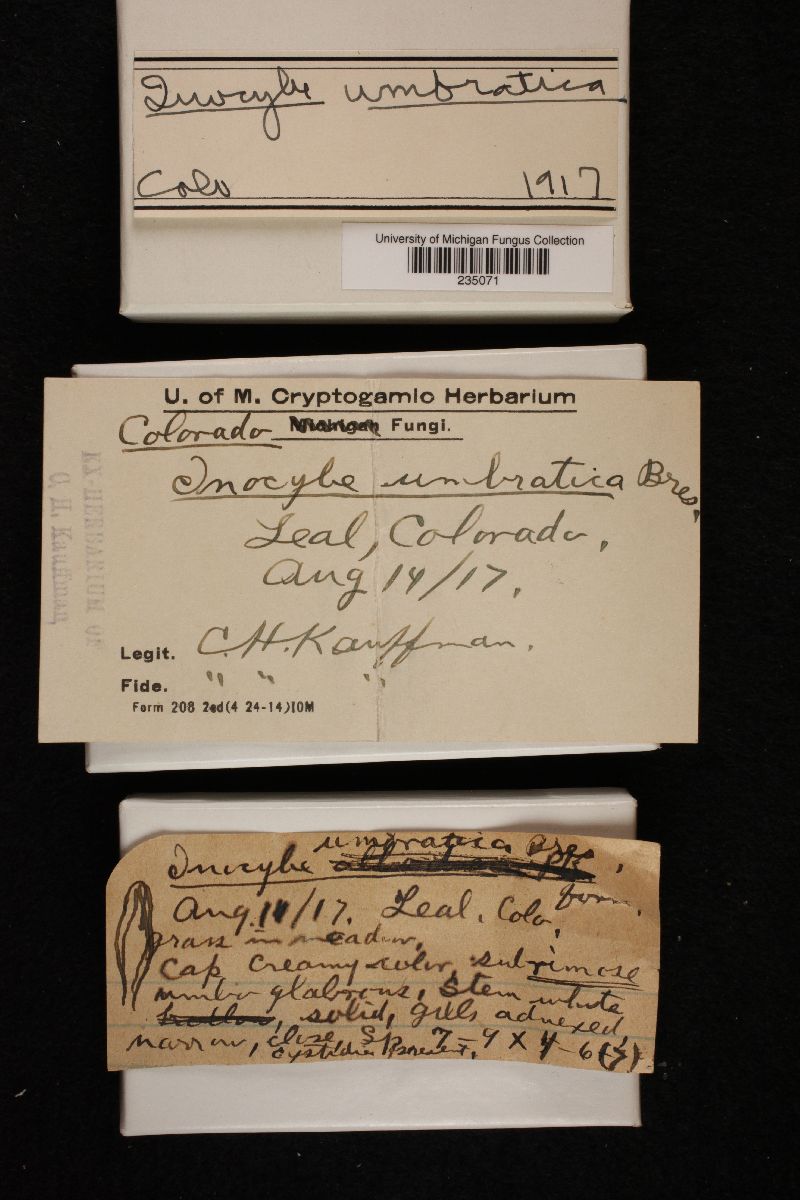 Inocybe umbratica
Colo 1917
University of Michigan Fungus Collection
235071
U. of M. Cryptogamic Herbarium
Colorado Michigan Fungi.
Inocybe umbratica Bres.
Leal, Colorado.
Aug 14/17.
Legit. C. H. Kauffman.
Fide. " " "
Form 208 2ed(4 24-14)10M
EX-HERBARIUM OF
C. H. Kauffman
umbratica Bres.
Inocybe
Aug. /17. Leal. Colo. form.
grass in meadow.
Cap creamy-color, subrimose
umbo glabrous, Stem white
hollow, solid, gills adnexed,
narrow, close Sp. 7-9 X 4-6
cystidia present.